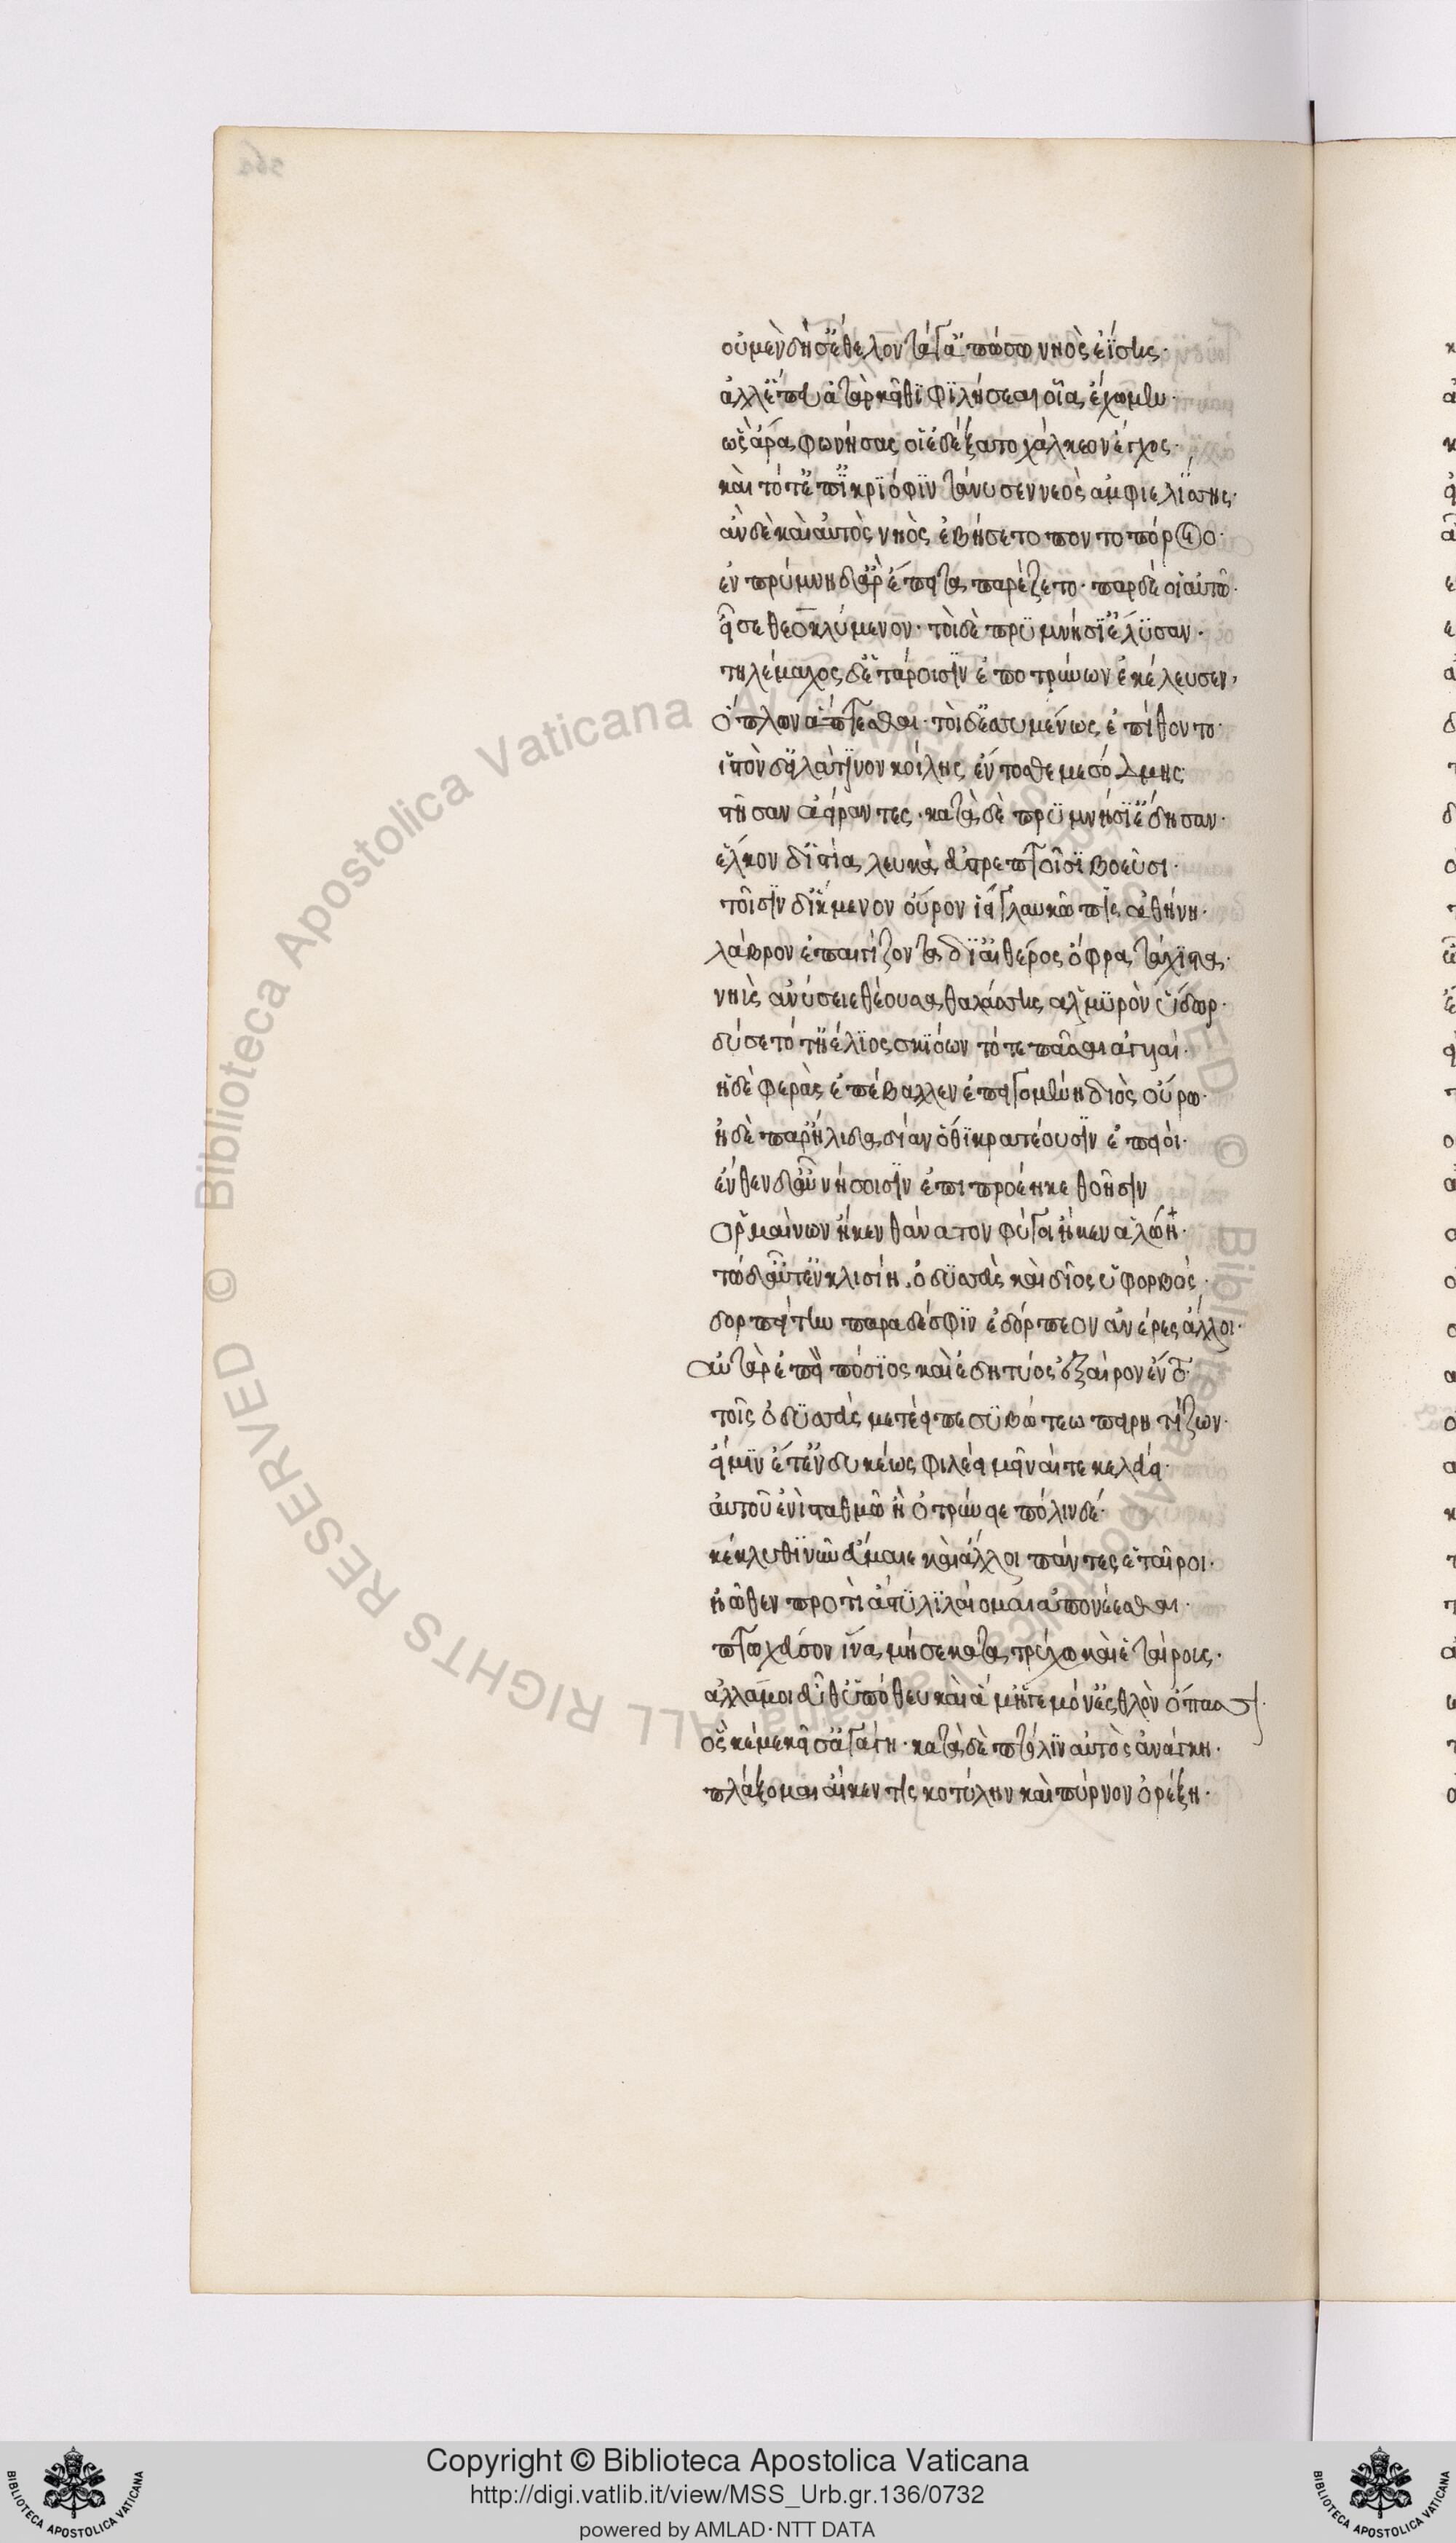 οὐ μὲν δή σ' ἐθέλοντά γ' ἀπώσω νηὸς ἐΐσης·
ἀλλ' ἕπευ ἀτὰρ κεῖθι φιλήσεαι οἷά κ' ἔχωμεν·
ὣς ἄρα φωνήσας οἱ ἐδέξατο χάλκεον ἔγχος·
καὶ τό γ' ἐπ' ἰκριόφιν τάνυσεν νεὸς ἀμφιελίσσης·
ἂν δὲ καὶ αὐτὸς νηὸς ἐβήσετο ποντοπόροιο·
ἐν πρύμνῃ δ' ἄρ' ἔπειτα παρέζετο· παρ δέ οἱ αὐτῶ·
εἷσε θεοκλύμενον· τοὶ δὲ πρυμνήσι' ἔλυσαν·
τηλέμαχος δ' ἑτάροισιν ἐποτρύνων ἐκέλευσεν,
ὅπλων ἅπτεσθαι· τοὶ δ' ἐσσυμένως ἐπίθοντο·
ἱστὸν δ' εἰλάτινον κοίλης ἔντοσθε μεσόδμης
στῆσαν ἀείραντες· κατὰ δὲ πρυμνήσι' ἔδησαν·
ἕλκον δ' ἱστία λευκὰ ἐϋστρεπτοῖσι βοεῦσι·
τοῖσιν δ' ἴκμενον οὖρον ἵει γλαυκῶπις ἀθήνη·
λάβρον ἐπαιγίζοντα δι' αἰθέρος ὄφρα τάχιστα·
νηῦς ἀνύσειε θέουσα θαλάσσης ἁλμυρὸν ὕδωρ·
δύσετό τ' ἠέλιος σκιόωντό τε πᾶσαι ἀγυιαί·
ἡ δὲ φερὰς ἐπέβαλλεν ἐπειγομένη διὸς οὔρω·
ἠδὲ παρ' ἤλιδα δῖαν ὅθι κρατέουσιν ἐπειοί·
ἔνθεν δ' αὖ νήσοισιν ἐπιπροέηκε θοῇσιν
ὁρμαίνων ἤ κεν θάνατον φύγοι ἤ κεν ἁλώη·
τὼ δ' αὖτ' ἐν κλισίη ὀδυσσεὺς καὶ δῖος ὑφορβὸς·
δορπείτην παρὰ δέ σφιν ἐδόρπεον ἀνέρες ἄλλοι·
αὐτὰρ ἐπεὶ πόσιος καὶ ἐδητύος ἐξ ἔρον ἕντο·
τοῖς ὀδυσσεὺς μετέειπε συβώτεω πειρητίζων·
εἴ μιν ἔτ' ἐνδυκέως φιλέει μεῖναί τε κελεύει·
αὐτοῦ ἐνὶ σταθμῶ ἢ ὀτρύνειε πόλινδέ·
κέκλυθι νῦν εὔμαιε καὶ ἄλλοι πάντες ἑταῖροι·
ἠῶθεν προτὶ ἄστυ λιλαίομαι ἀπονέεσθαι·
πτωχεύσων ἵνα μή σε κατατρύχω καὶ ἑταίρους·
ἀλλά μοι εὖ θ' ὑπόθευ καὶ ἅμ' ἡγεμόν' ἐσθλὸν ὄπασσον·
ὅς κέ με κεῖσ' ἀγάγη· κατὰ δὲ πτόλιν αὐτὸς ἀνάγκη·
πλάγξομαι αἴ κέν τις κοτύλην καὶ πύρνον ὀρέξη·
Copyright © Biblioteca Apostolica Vaticana
http://digi.vatlib.it/view/MSS_Urb.gr.136/0732
powered by AMLAD·NTT DATA